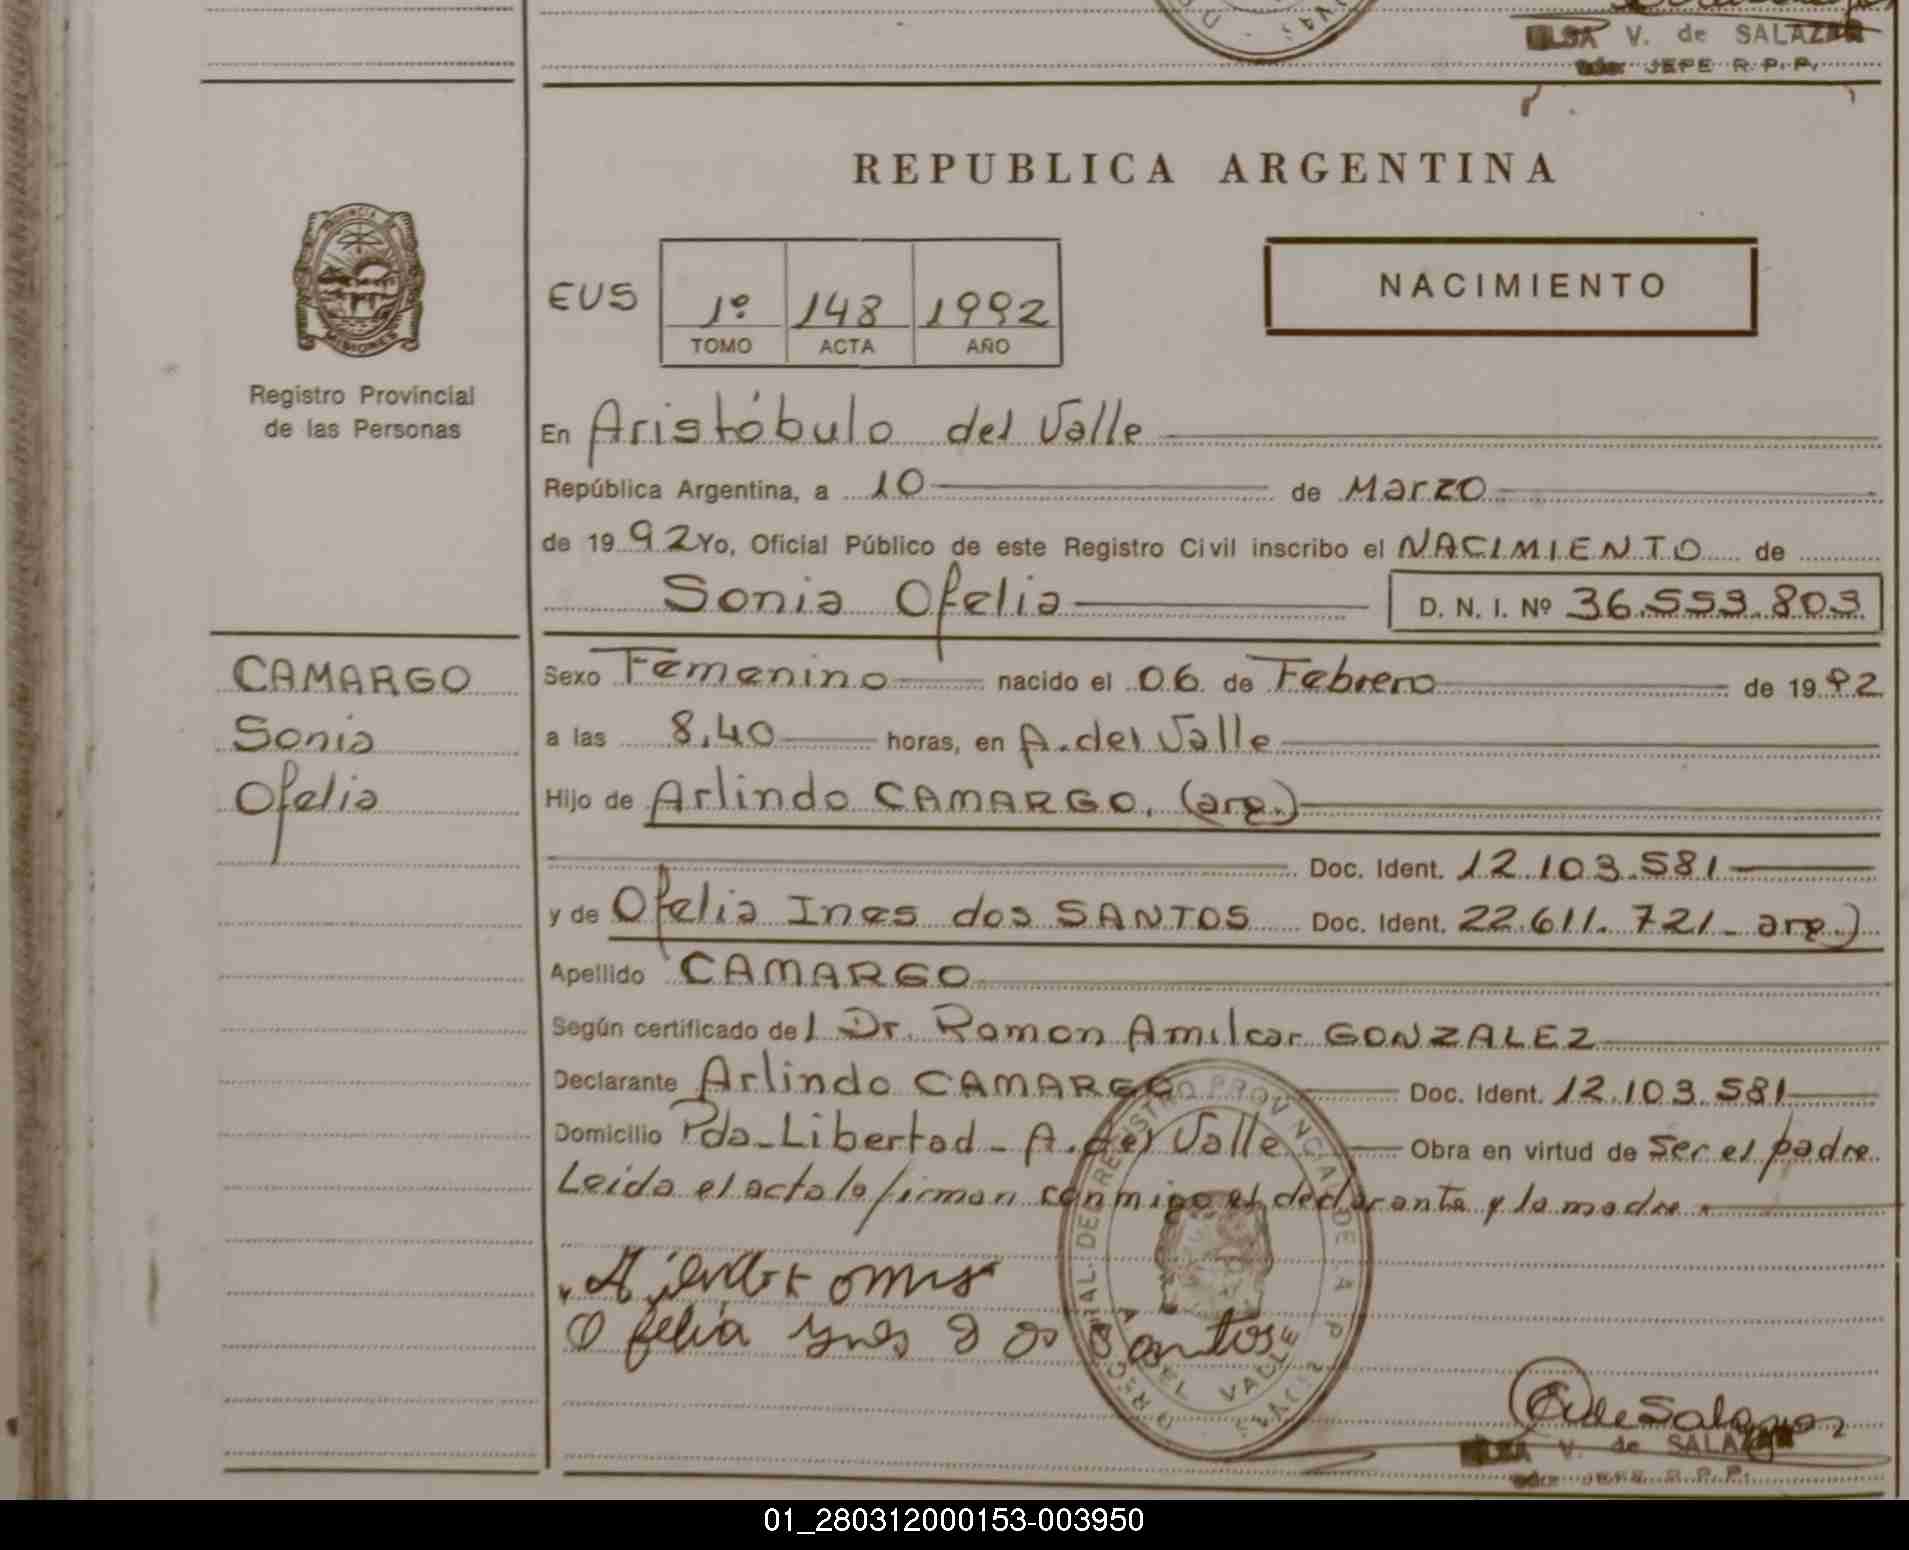 V. de SALAZAR
JEFE R.P.P.
REPUBLICA ARGENTINA
MISIONES
Registro Provincial
de las Personas
EUS
1º 148 1992
TOMO ACTA AÑO
NACIMIENTO
En Aristóbulo del Valle
República Argentina, a 10 de Marzo
de 1992 Yo, Oficial Público de este Registro Civil inscribo el NACIMIENTO de
Sonia Ofelia D. N. I. Nº 36.559.809
CAMARGO
Sonia
Ofelia
Sexo Femenino nacido el 06 de Febrero de 1992
a las 8,40 horas, en A. del Valle
Hijo de Arlindo CAMARGO, (arg.)
Doc. Ident. 12.103.581
y de Ofelia Ines dos SANTOS Doc. Ident. 22.611.721 - arg.)
Apellido CAMARGO
Según certificado del Dr. Ramon Amilcar GONZALEZ
Declarante Arlindo CAMARGO Doc. Ident. 12.103.581
Domicilio Pda-Libertad - A. del Valle Obra en virtud de Ser el padre
Leida el acta la firman conmigo el declarante y la madre
Ofelia Ynes dos Santos
V. de SALAZAR
JEFE R.P.P.
01_280312000153-003950